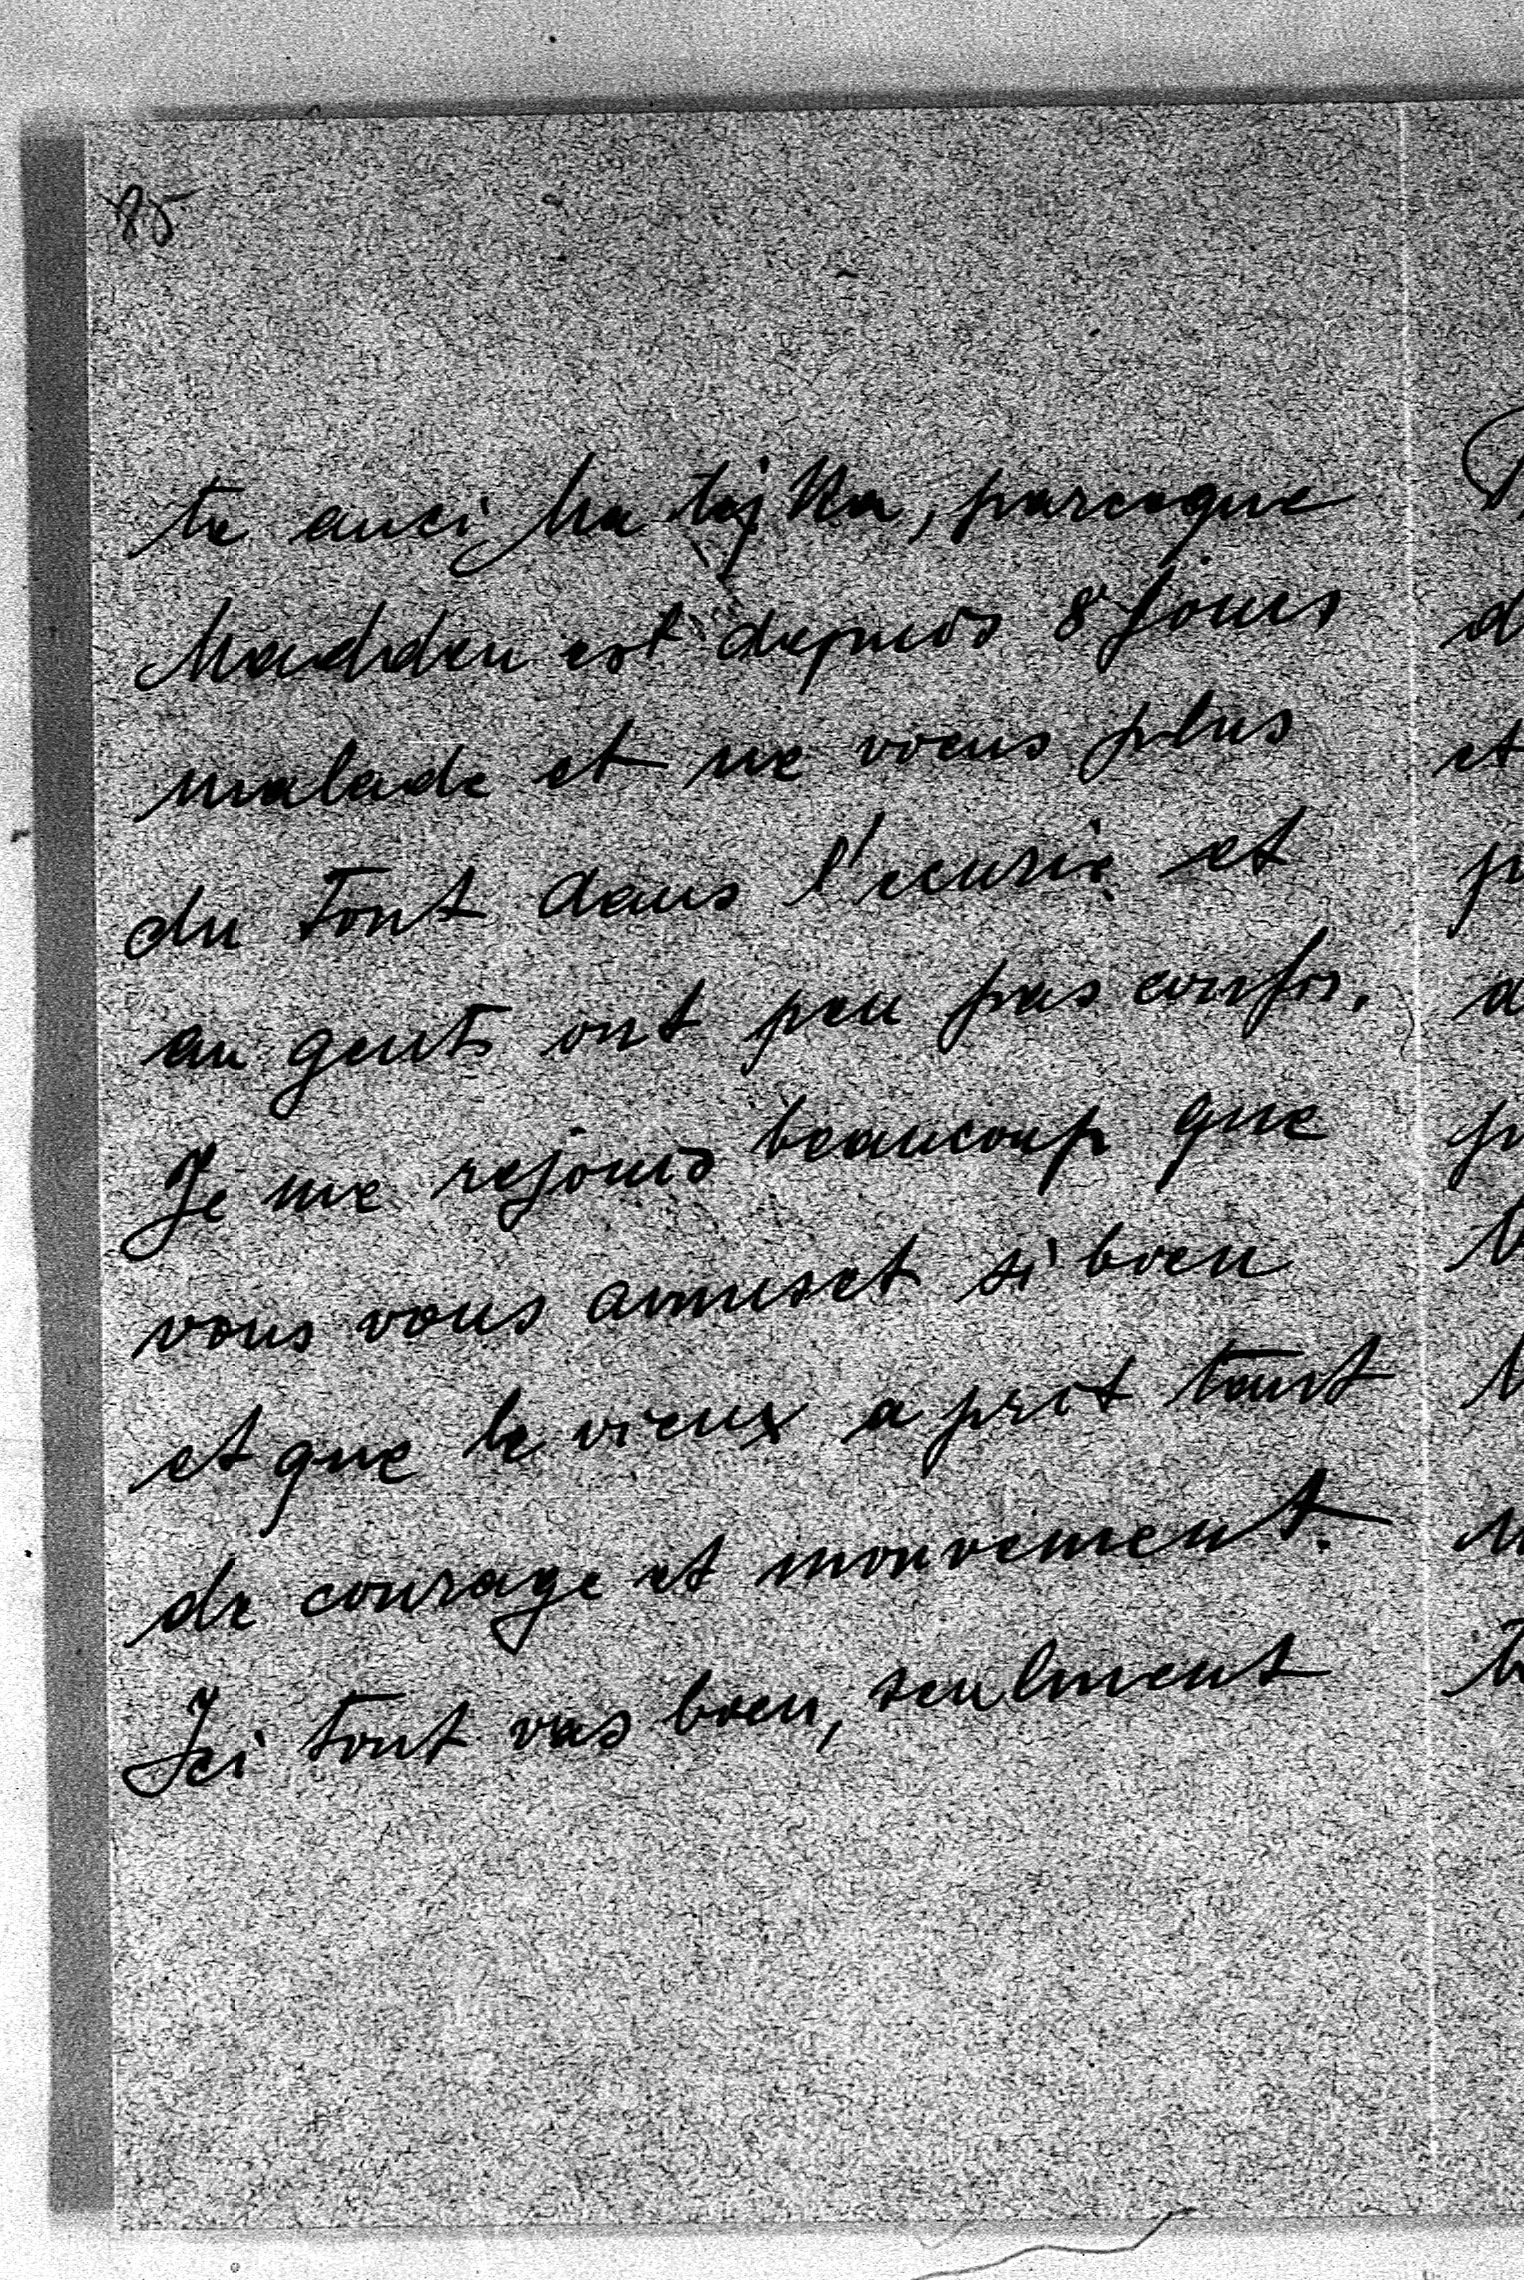 85
te auci Matejka, parceque
Madden est depuis 8 jours
malade et ne viens plus
du tout dans l'ecurie et
au gents ont peu pas confi.
Je me rejouis beaucoup que
vous vous amuset si bien
et que le vieux a prit tant
de courage et mouvement.
Ici tout vas bien, seulment